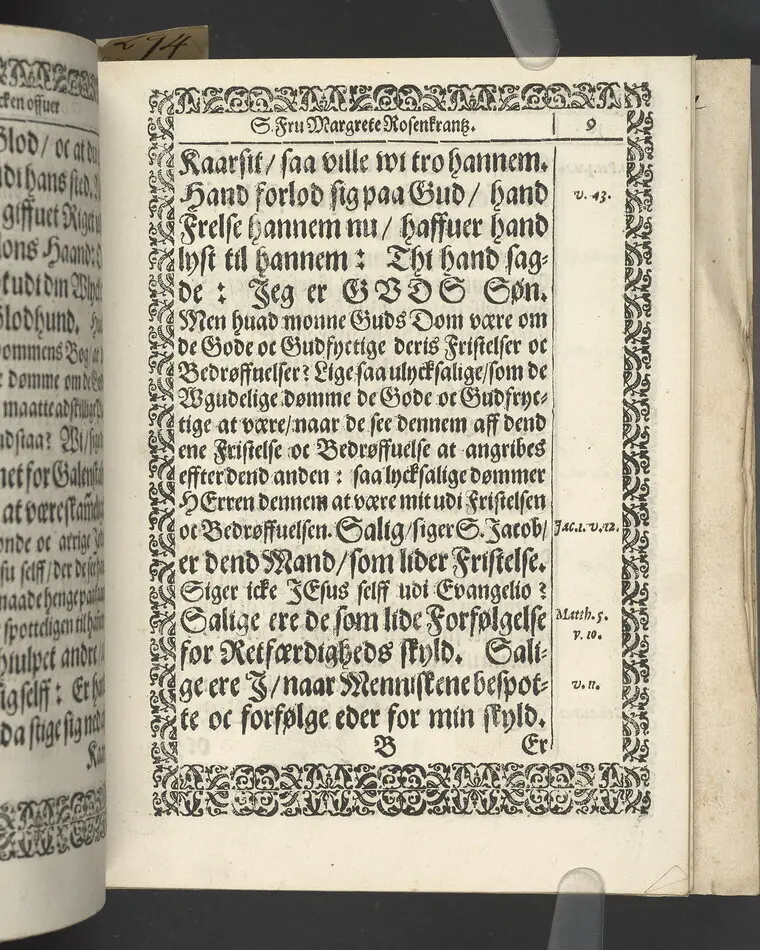 274
cken offuer
Glod/ oc at du
udi hans sted.
giffuet Riget
ons Haand:
t udi din
lodhund.
ommens Bog/
dømme om de
maatte adskillige
udstaa? Wi/
net for Galenskab
at være
onde oc arrige
su selff/ der de see
naade henge paa
spotteligen til
hiulpet andre/
sig selff: Er
da stige sig ned
S. Fru Margrete Rosenkrantz. 9
Kaarsit/ saa ville wi tro hannem.
Hand forlod sig paa Gud/ hand v. 43.
Frelse hannem nu/ haffuer hand
lyst til hannem: Thi hand sag-
de: Jeg er GVDS Søn.
Men huad monne Guds Dom være om
de Gode oc Gudfyctige deris Fristelser oc
Bedrøffuelser? Lige saa ulycksalige/som de
Wgudelige dømme de Gode oc Gudfryc-
tige at være/naar de see dennem aff dend
ene Fristelse oc Bedrøffuelse at angribes
effter dend anden: saa lycksalige dømmer
HErren dennem at være mit udi Fristelsen
oc Bedrøffuelsen. Salig/siger S. Jacob/ Jac.1.v.12.
er dend Mand/som lider Fristelse.
Siger icke JEsus selff udi Evangelio?
Salige ere de som lide Forfølgelse Matth. 5.
for Retfærdigheds skyld. Sali- v. 10.
ge ere J/naar Menniskene bespot- v. 11.
te oc forfølge eder for min skyld.
B Er